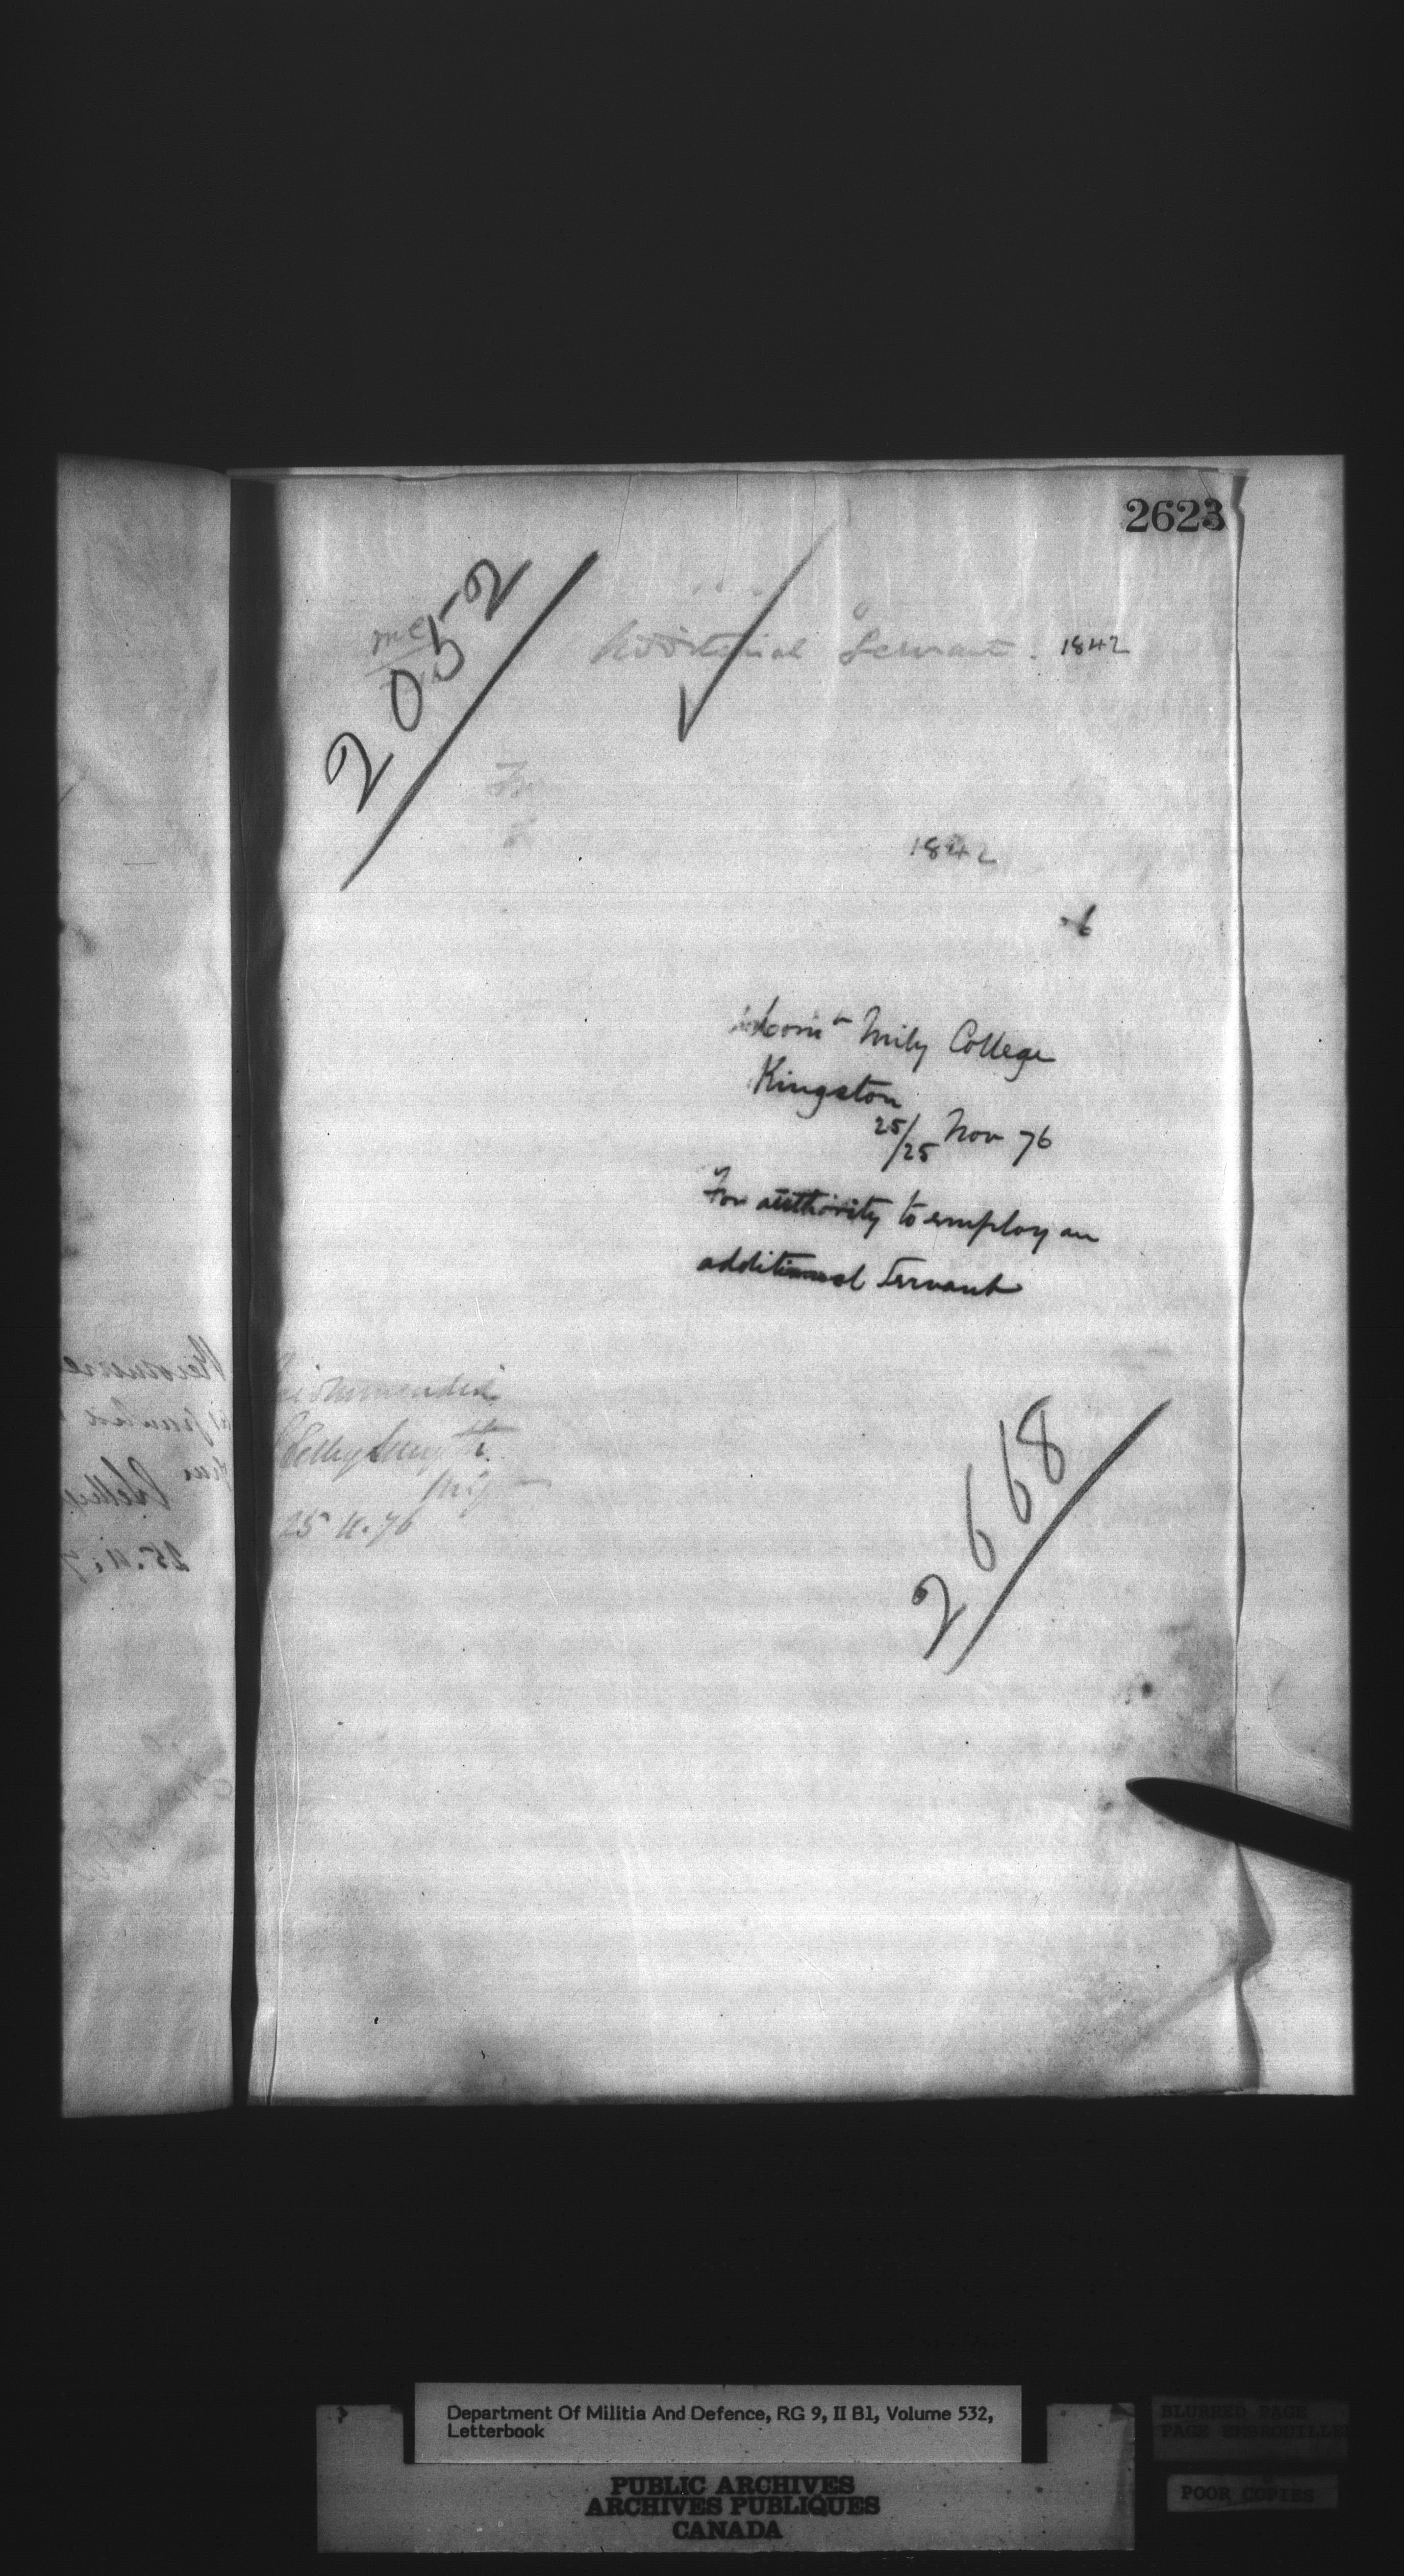 2623
2052
Additional Servant. 1842
1842
Comt Mily College
Kingston
25/25 Nov 76
For authority to employ an
additional Servant
Recommended
Selby Smyth
25.11.76
2668
Department Of Militia And Defence, RG 9, II B1, Volume 532,
Letterbook
PUBLIC ARCHIVES
ARCHIVES PUBLIQUES
CANADA
BLURRED PAGE
PAGE EMBROUILLEE
POOR COPIES